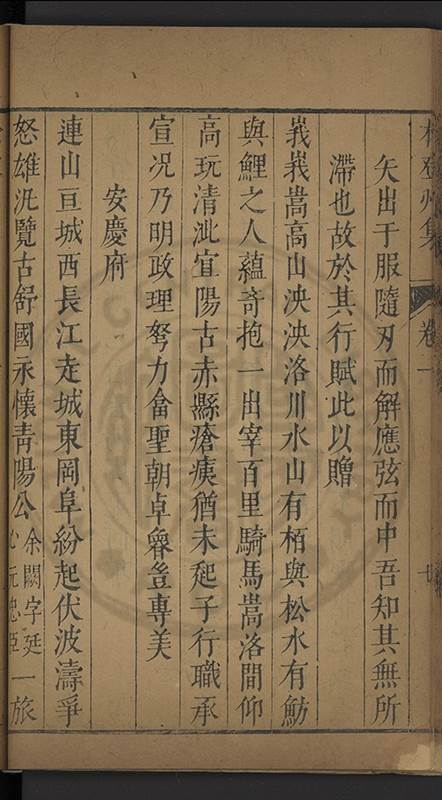 林登州集 卷一 十
矢出于服隨刃而解應弦而中吾知其無所
滯也故於其行賦此以贈
峩峩嵩高山泱泱洛川水山有栢與松水有魴
與鯉之人蘊奇抱一出宰百里騎馬嵩洛間仰
高玩清泚宜陽古赤縣瘡痍猶未起子行職承
宣况乃明政理努力畣聖朝卓魯豈專美
安慶府
連山亘城西長江走城東岡阜紛起伏波濤爭
怒雄汎覽古舒國永懷青陽公余闕字廷心元忠臣一旅